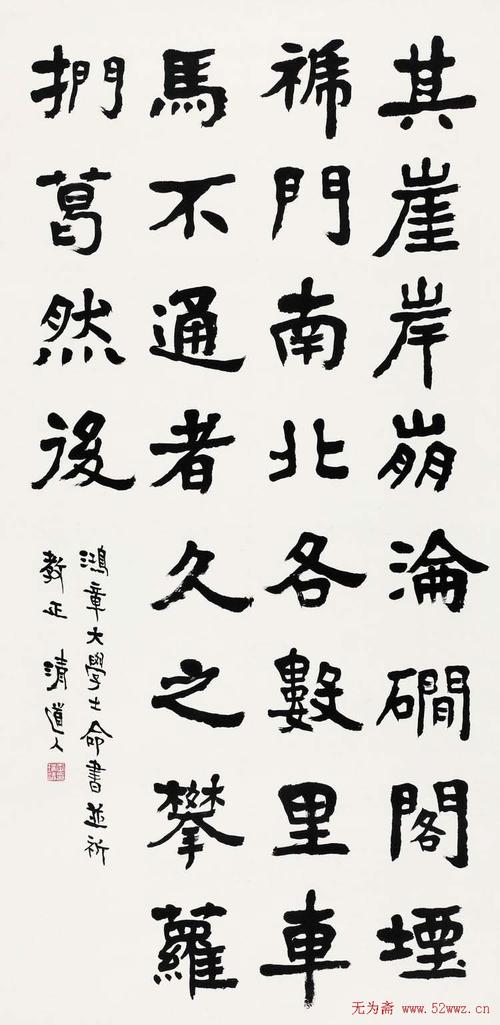 其崖岸崩淪磵閣堙
褫門南北各數里車
馬不通者久之攀蘿
捫葛然後
鴻章大學士命書並祈
教正 清道人
无为斋 www.52wwz.cn